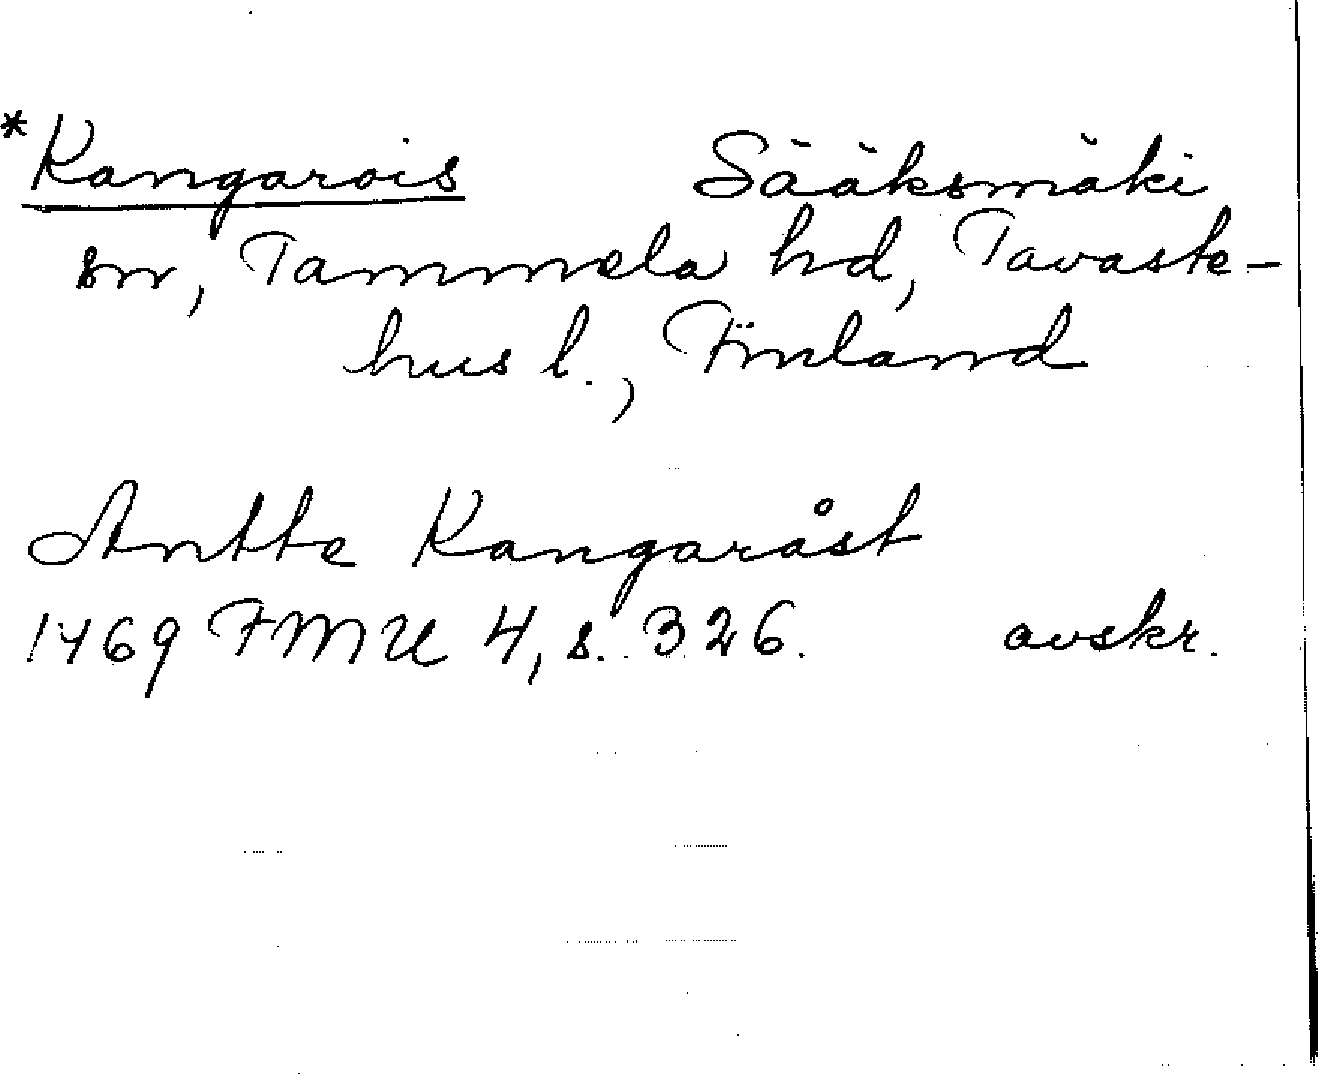 *Kangarois Sääksmäki
sn, Tammela hd, Tavaste-
hus l., Finland
Antte Kangaråst
1469 FMU 4, s. 326. avskr.